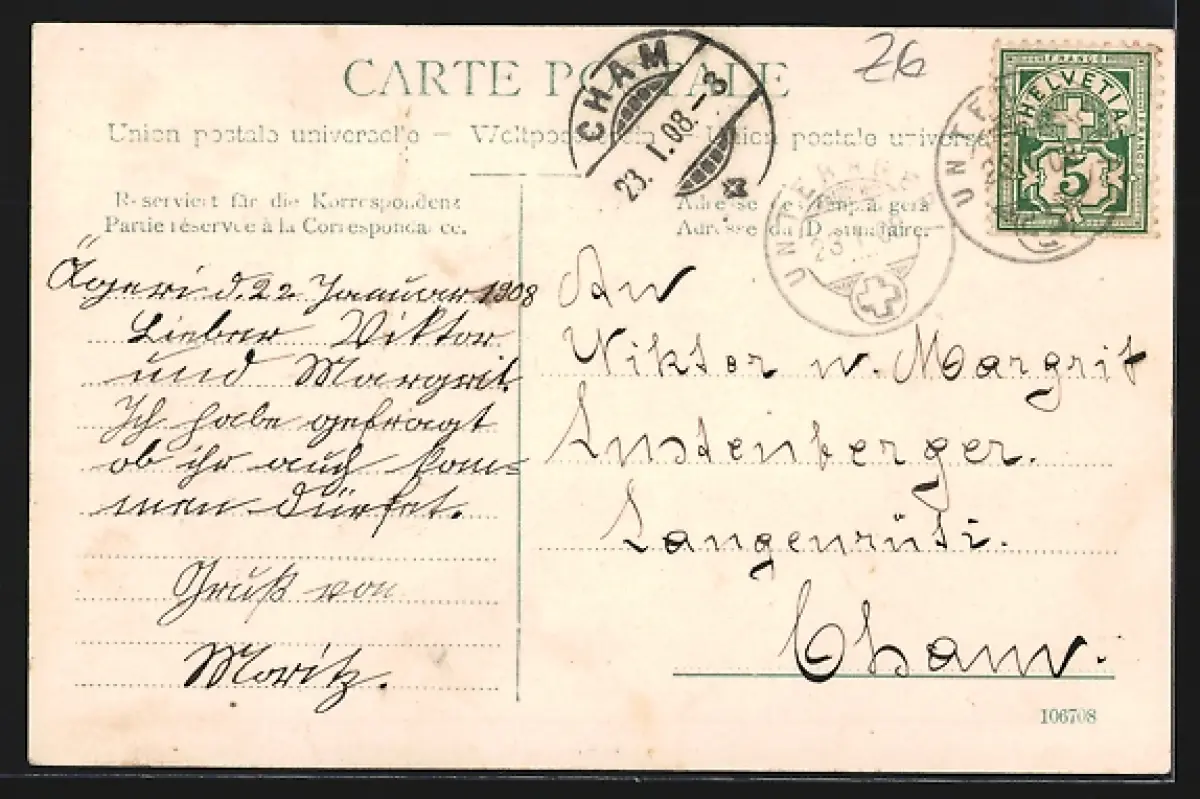 CARTE POSTALE
Union postale universelle – Weltpostverein – Union postale universelle
Reserviert für die Korrespondenz
Partie réservée à la Correspondance.
Adresse des Empfängers
Adresse du Destinataire.
CHAM
23.I.08.-8
UNTERÄGERI
23.I.08
UNTERÄGERI
FRANCO
HELVETIA
FRANCO
5
26
Ägeri d. 22. Januar 1908
Lieber Viktor
und Margrit.
Ich habe gefragt
ob ihr auch kom=
men dürfet.
Gruß von
Moritz.
An
Viktor u. Margrit
Lustenberger.
Langenrüti.
Cham.
106708